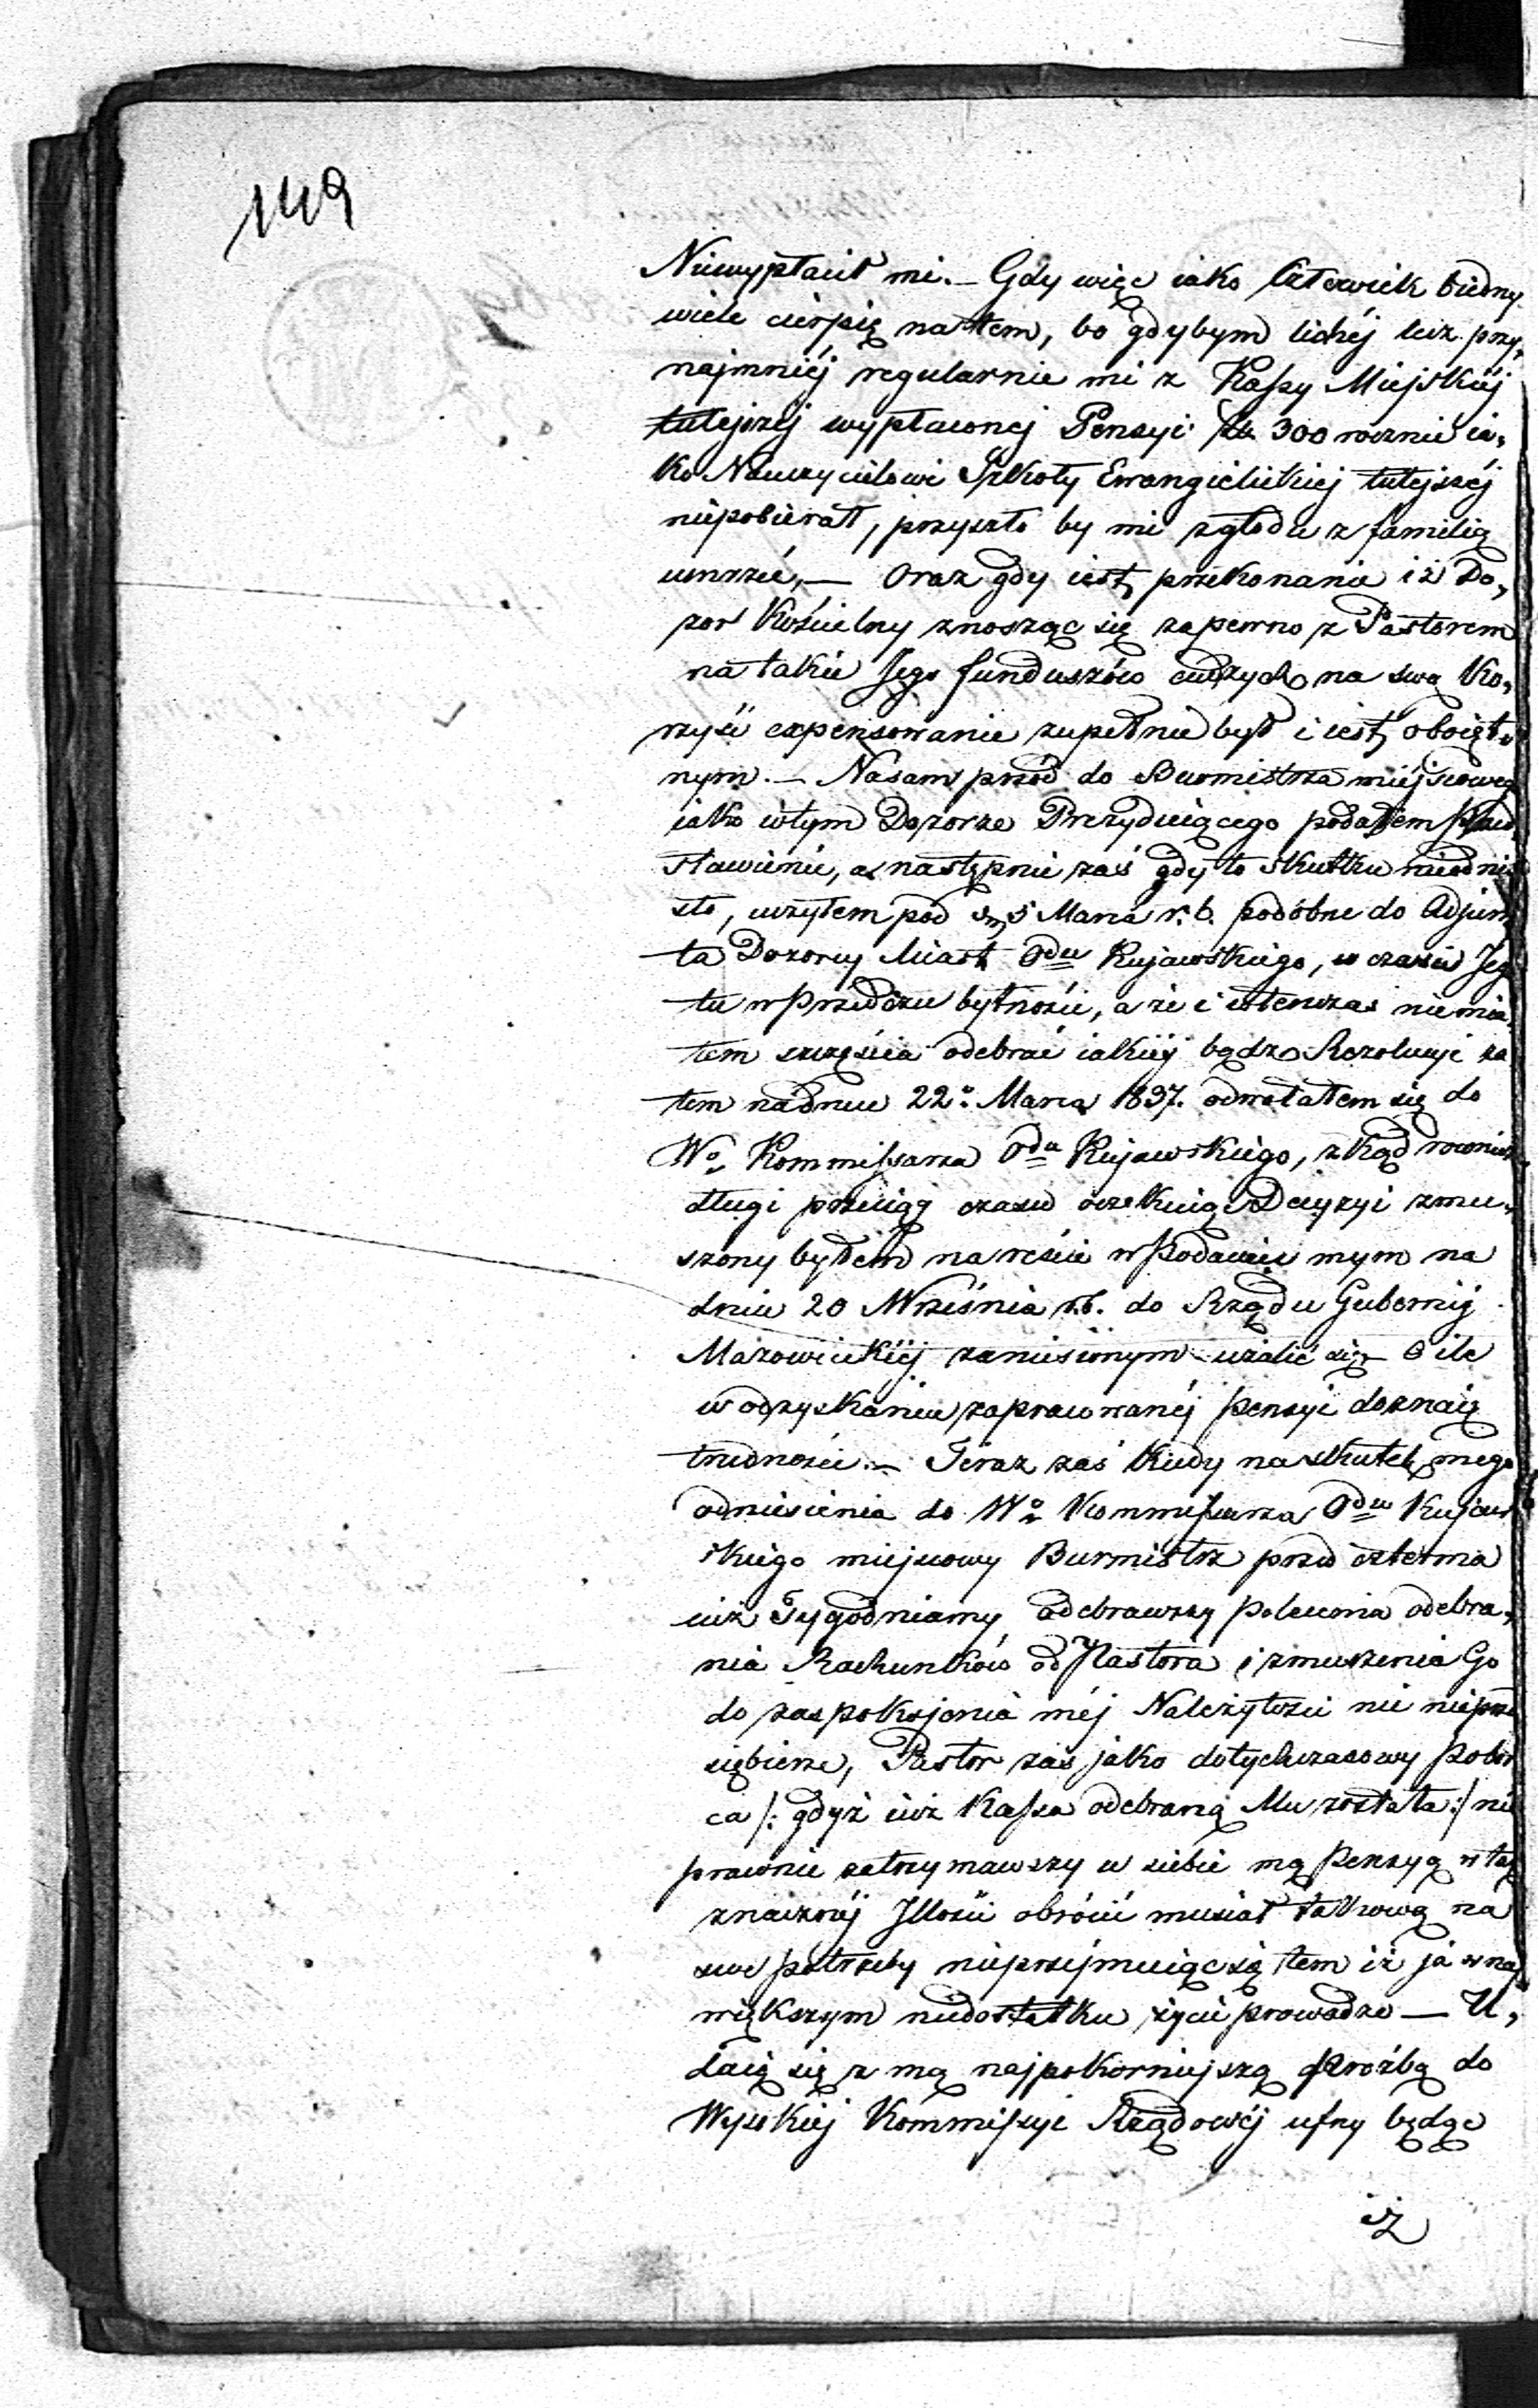 149
Niewypłacił mi. — Gdy więc iako Człowiek biedny
wiele cierpię na tem, bo gdybym lichéj lecz przy,
najmniéj regularnie mi z Kassy Miejskiéj
tutejszéj wypłaconej Pensyi Zł: 300 rocznie ia,
ko Nauczycielowi Szkoły Ewangielickiej tutejszéj
niepobierał, przyszło by mi zgłodu z familią
umrzeć, — Oraz gdy iest przekonanie iż Do,
zor Kościelny znosząc się zapewno z Pastorem
na takie Jego funduszów cudzych na swą Ko,
rzyść expensowanie zupełnie był i iest oboięt,
nym. — Nasam przód do Burmistrza miejscoweg
iako wtym Dozorze Prezyduiącego podałem
stawienie, a następnie zaś gdy to skutku nieodnio
sło, użyłem pod d. 5 Marca r. b. podobne do Adjun,
ta Dozorcy Miast Odu Kujawskiego, w czasie Jeg
tu w Przedczu bytności, a że i wtenczas niemia,
łem szczęścia odebrać iakiéj bądź Rezolucyi za
tem nadniu 22o Marca 1837. odwołałem się do
Wo Kommissarza Odu Kujawskiego, zkąd również
długi przeciąg czasu oczekuiąc Decyzyi zmu,
szony byłem nareście w Podaniu mym na
dniu 20 Września r.b. do Rządu Gubernij
Mazowieckiéj zaniesionym użalić się — O ile
w odzyskaniu zapracowanéj pensyi doznaię
trudności. — Teraz zaś kiedy na skutek mego
odniesienia do Wo Kommissarza Odu Kujaw
skiego miejscowy Burmistrz przed czterma
iuż Tygodniamy odebrawszy polecenia odebra,
nia Rachunków od Pastora i zmuszenia Go
do zaspokojenia méj Należytości nic nieprze
siębierze, Pastor zaś jako dotychczasowy pobor
ca /: gdyż iuż Kassa odebraną Mu została :/ nie
prawnie zatrzymawszy u siebie mą Pensyą w tak
znaczney Jllości obrócić musiał takową na
swe potrzeby nieprzejmuiąc się tem iż ja w naj
większym niedostatku życie prowadze — U,
daię się z mą najpokorniejszą proźbą do
Wysokiej Kommissyi Rządowéj ufny będąc
iż